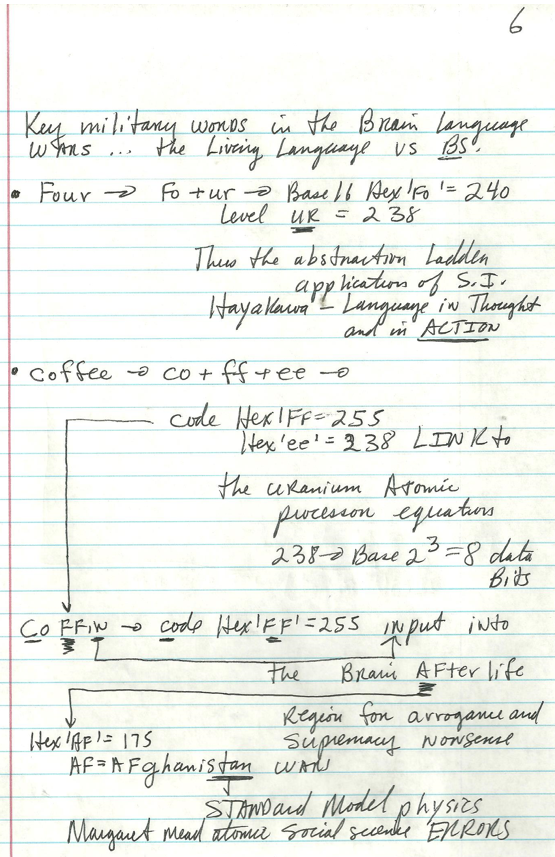 6
Key military words in the Brain Language
WARS ... the Living Language vs BS.
• Four → Fo + ur → Base 16 Hex'Fo' = 240
Level UR = 238
Thus the abstraction Ladder
application of S.I.
Hayakawa - Language in Thought
and in ACTION
• coffee → co + ff + ee →
code Hex'FF = 255
Hex'ee' = 238 LINK to
the URanium Atomic
processor equation
238 → Base 2³ = 8 data
Bits
Co FFin → code Hex'FF' = 255 input into
the Brain AFter life
Region for arrogance and
Hex'AF' = 175 Supremacy Nonsense
AF = AFghanistan WAR
STANdard Model physics
Margaret Mead atomic social science ERRORS